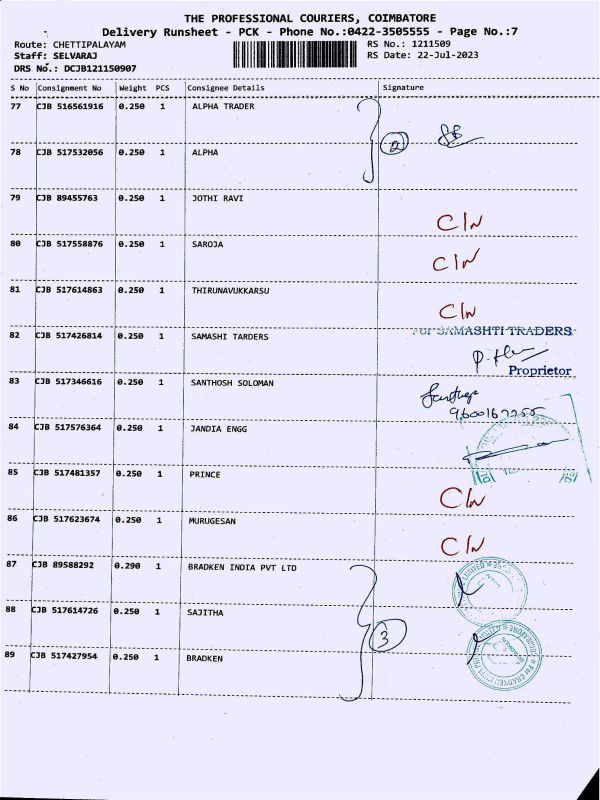 THE PROFESSIONAL COURIERS, COIMBATORE
Delivery Runsheet - PCK - Phone No.:0422-3505555 - Page No.:7
Route: CHETTIPALAYAM RS No.: 1211509
Staff: SELVARAJ RS Date: 22-Jul-2023
DRS No.: DCJB121150907
S No Consignment No Weight PCS Consignee Details Signature
77 CJB 516561916 0.250 1 ALPHA TRADER
2
78 CJB 517532056 0.250 1 ALPHA
79 CJB 89455763 0.250 1 JOTHI RAVI
C/N
80 CJB 517558876 0.250 1 SAROJA
C/N
81 CJB 517614863 0.250 1 THIRUNAVUKKARSU
C/N
For SAMASHTI TRADERS
82 CJB 517426814 0.250 1 SAMASHI TARDERS
Proprietor
83 CJB 517346616 0.250 1 SANTHOSH SOLOMAN
84 CJB 517576364 0.250 1 JANDIA ENGG
85 CJB 517481357 0.250 1 PRINCE
C/N
86 CJB 517623674 0.250 1 MURUGESAN
C/N
87 CJB 89588292 0.290 1 BRADKEN INDIA PVT LTD
88 CJB 517614726 0.250 1 SAJITHA
3
89 CJB 517427954 0.250 1 BRADKEN